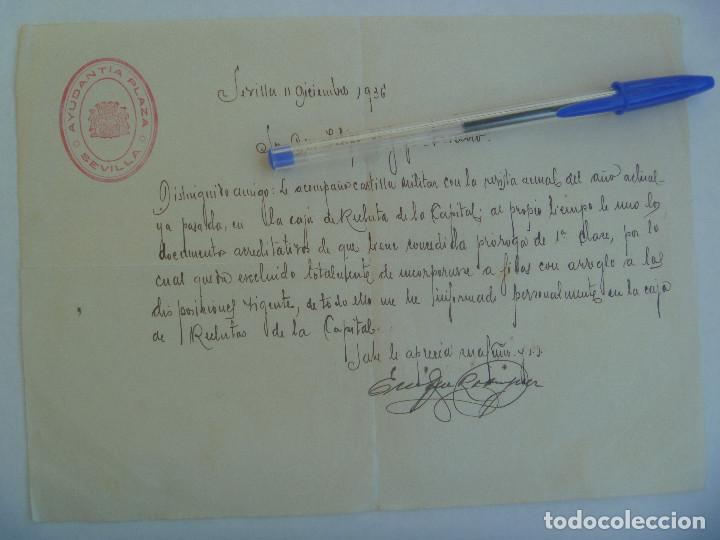 AYUDANTIA PLAZA
SEVILLA
Sevilla 11 Diciembre 1936
Sr Don
Distinguido amigo: Le acompaño cartilla militar con la revista anual del año actual
ya pasada, en la caja de Recluta de la Capital; al propio tiempo le uno los
documentos acreditativos de que tiene concedida prorroga de 1ª clase, por lo
cual queda excluido totalmente de incorporarse a filas con arreglo a las
disposiciones vigente, de todo ello me he informado personalmente en la caja
de Reclutas de la Capital.
Sabe le aprecia su affmo. y s.s.
Enrique Rodriguez
todocoleccion.net